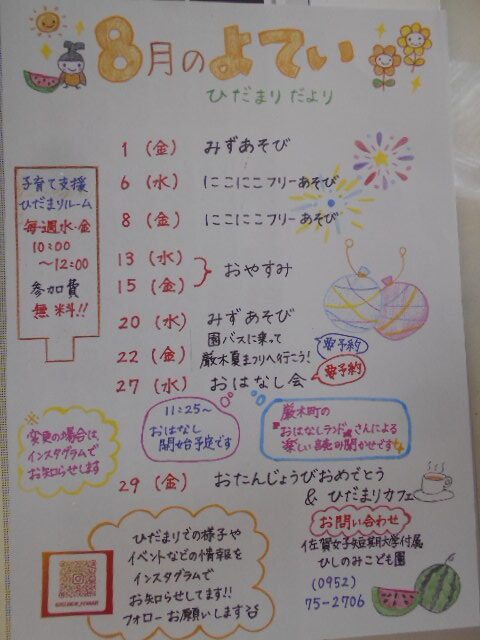 8月のよてい
ひだまりだより
子育て支援
ひだまりルーム
毎週水・金
10:00
～12:00
参加費
無料!!
1 (金) みずあそび
6 (水) にこにこフリーあそび
8 (金) にこにこフリーあそび
13 (水)
15 (金)
おやすみ
20 (水) みずあそび
22 (金) 園バスに乗って
厳木夏まつりへ行こう!
要予約
27 (水) おはなし会
要予約
11:25~
おはなし
開始予定です
厳木町の
"おはなしランド"さんによる
楽しい読み聞かせです
※
変更の場合は、
インスタグラムで
お知らせします
29 (金) おたんじょうびおめでとう
& ひだまりカフェ
ひだまりでの様子や
イベントなどの情報を
インスタグラムで
お知らせしてます!!
フォローお願いします
お問い合わせ
佐賀女子短期大学付属
ひしのみこども園
(0952)
75-2706